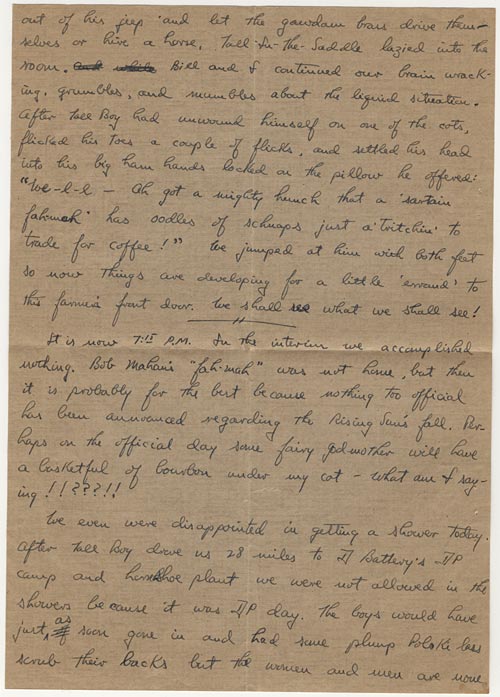 out of his jeep and let the gawdam brass drive them-
selves or hire a horse. Tall-In-The-Saddle lazied into the
room. Bill and I continued our brain wrack-
ing, grumbles, and mumbles about the liquid situation.
After Tall Boy had unwound himself on one of the cots,
flicked his toes a couple of flicks, and settled his head
into his big ham hands locked on the pillow he offered:
"We-l-l - Ah got a mighty hunch that a 'sartain
fah-mah' has oodles of schnaps just a 'tvitchin' to
trade for coffee!" We jumped at him with both feet
so now things are developing for a little 'errand' to
this farmer's front door. We shall see what we shall see!
It is now 7:15 P.M. In the interim we accomplished
nothing. Bob Mahan's "fah-mah" was not home, but then
it is probably for the best because nothing too official
has been announced regarding the Rising Sun's fall. Per-
haps on the official day some fairy godmother will have
a basketful of bourbon under my cot - What am I say-
ing!!???!!
We even were disappointed in getting a shower today.
After Tall Boy drove us 28 miles to D Battery's DP
camp and horseshoe plant we were not allowed in the
showers because it was DP day. The boys would have
just as soon gone in and had some plump Polske lass
scrub their backs but the women and men are none